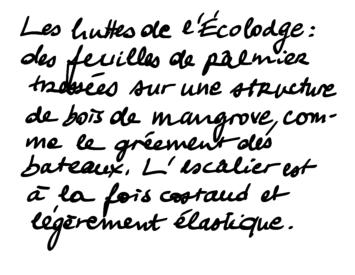 Les huttes de l'Écolodge :
des feuilles de palmier
tressées sur une structure
de bois de mangrove, com-
me le gréement des
bateaux. L'escalier est
à la fois costaud et
légèrement élastique.